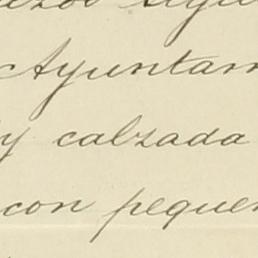 Ayuntam
y calzada
con peque